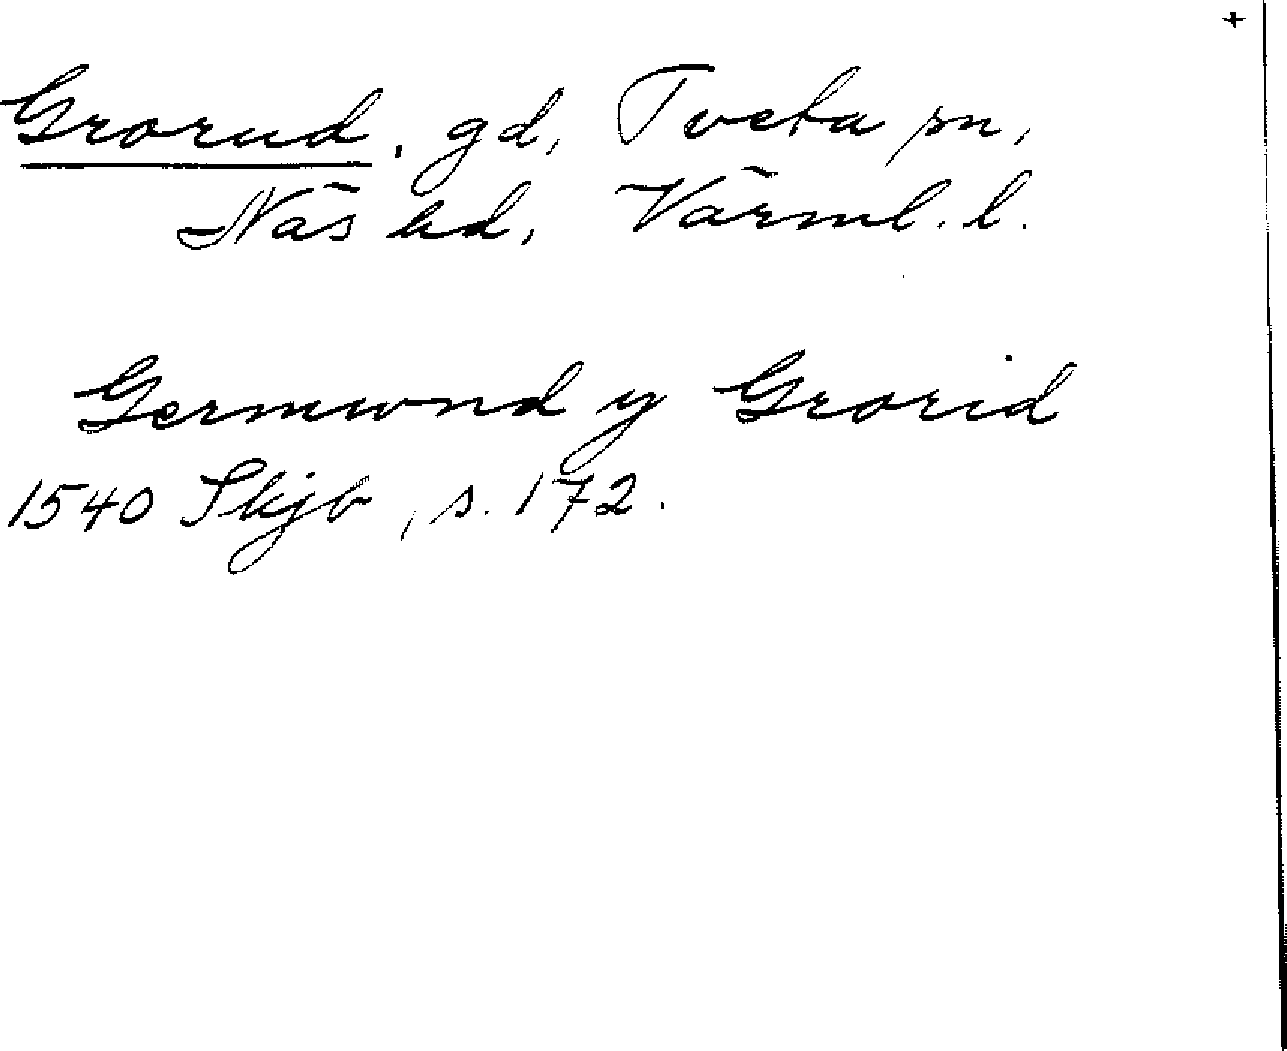 +
Grorud, gd, Tveta sn,
Näs hd, Värml. l.
Germwnd y Grorid
1540 Skjb, s. 172.